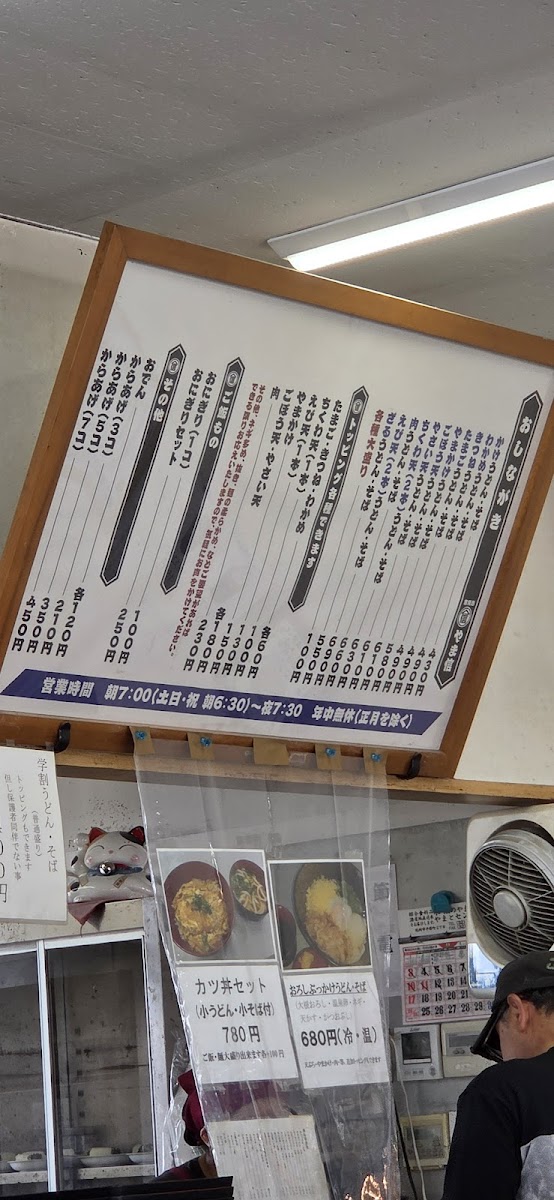 おしながき
やま信
かけうどん・そば 430円
わかめうどん・そば 490円
きつねうどん・そば 490円
たまごうどん・そば 490円
やまかけうどん・そば 580円
ごぼう天うどん・そば 610円
やさい天うどん・そば 610円
ちくわ天(2本)うどん・そば 630円
肉うどん・そば 660円
えび天(2本)うどん・そば 690円
ざるうどん・そば 550円
各種大盛り 100円
トッピング各種できます
たまご・きつね・わかめ 各60円
ちくわ天(1本) 100円
えび天(1本) 130円
やまかけ 150円
ごぼう天・やさい天 各180円
肉 230円
その他、ネギ多め、抜き、麺の柔らかめ、などご要望があれば
できる限りお応えいたしますので、気軽にお声をかけてください。
ご飯もの
おにぎり(1コ) 100円
おにぎりセット 250円
その他
おでん 各120円
からあげ(3コ) 210円
からあげ(5コ) 350円
からあげ(7コ) 450円
営業時間 朝7:00(土日・祝 朝6:30)〜夜7:30 年中無休(正月を除く)
学割うどん・そば
(普通盛り)
トッピングもできます
但し保護者同伴でない事
円
カツ丼セット
(小うどん・小そば付)
780円
ご飯・麺大盛り出来ます各+100円
おろしぶっかけうどん・そば
(大根おろし・温泉卵・ネギ・
天かす・かつおぶし)
680円(冷・温)